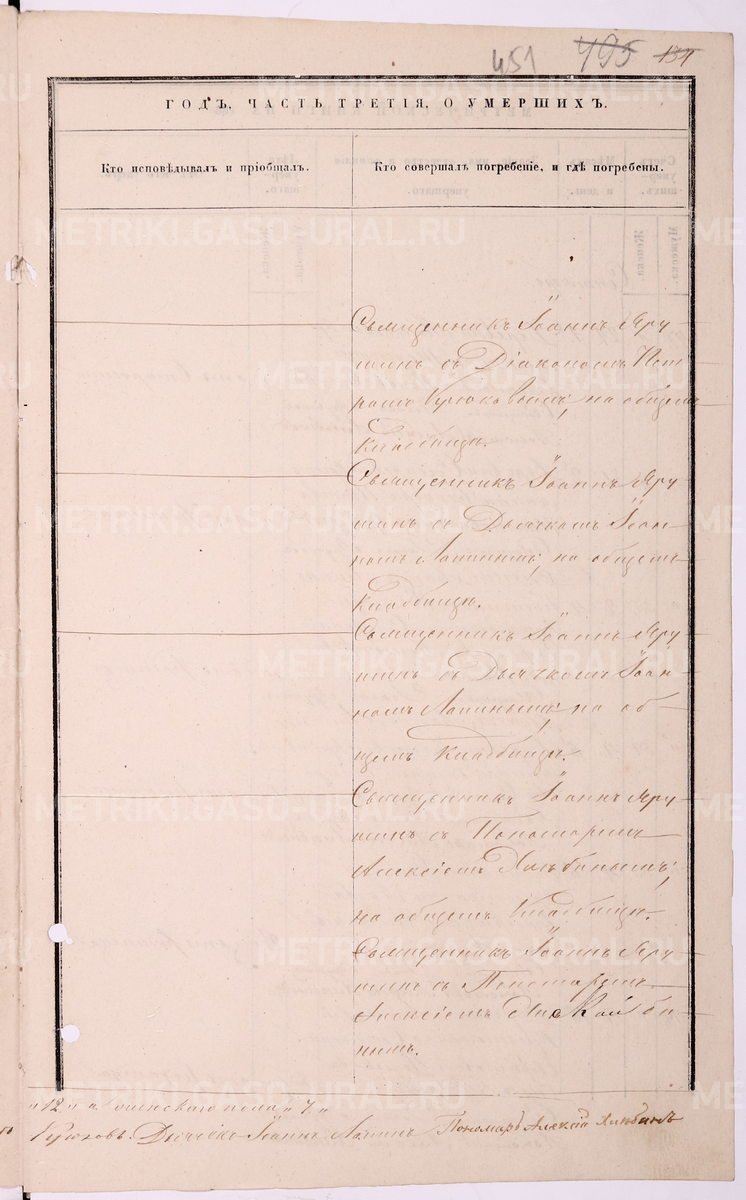 451 495 134
ГОДЪ, ЧАСТЬ ТРЕТІЯ, О УМЕРШИХЪ.
Кто исповѣдывалъ и пріобщалъ.
Кто совершалъ погребеніе, и гдѣ погребены.
Священникъ Іоаннъ Яру-
шинъ съ Діакономъ Пет-
ромъ Курюковымъ, на общемъ
Кладбищѣ.
Священникъ Іоаннъ Яру-
шинъ съ Дьячкомъ Іоан-
номъ Лапинымъ, на общемъ
Кладбищѣ.
Священникъ Іоаннъ Яру-
шинъ съ Дьячкомъ Іоан-
номъ Лапинымъ, на об-
щемъ Кладбищѣ.
Священникъ Іоаннъ Яру-
шинъ съ Пономаремъ
Алексіемъ Хлѣбинымъ,
на общемъ Кладбищѣ.
Священникъ Іоаннъ Яру-
шинъ съ Пономаремъ
Алексіемъ
нымъ.
"12" женскаго пола "7"
Дьячекъ Іоаннъ Лапинъ Пономарь Алексій Хлѣбинъ
METRIKI.GASO-URAL.RU